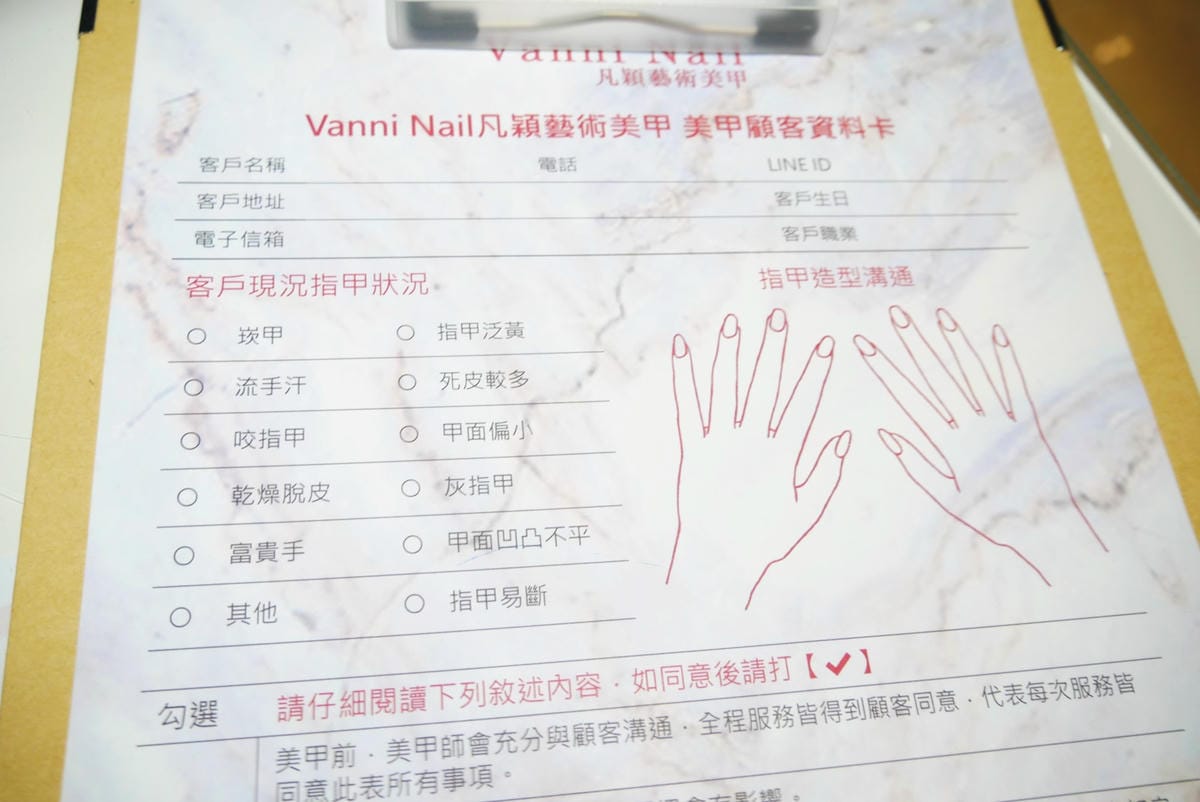 Vanni Nail
凡穎藝術美甲
Vanni Nail凡穎藝術美甲 美甲顧客資料卡
客戶名稱 電話 LINE ID
客戶地址 客戶生日
電子信箱 客戶職業
客戶現況指甲狀況
指甲造型溝通
崁甲 指甲泛黃
流手汗 死皮較多
咬指甲 甲面偏小
乾燥脫皮 灰指甲
富貴手 甲面凹凸不平
其他 指甲易斷
勾選 請仔細閱讀下列敘述內容．如同意後請打【✔】
美甲前．美甲師會充分與顧客溝通．全程服務皆得到顧客同意．代表每次服務皆
同意此表所有事項。
會有影響。